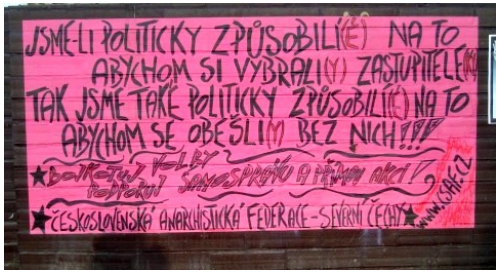 JSME-LI POLITICKY ZPŮSOBILÍ(É) NA TO
ABYCHOM SI VYBRALI(Y) ZASTUPITELE(KY)
TAK JSME TAKÉ POLITICKY ZPŮSOBILÍ(É) NA TO
ABYCHOM SE OBEŠLI(Y) BEZ NICH!!!
BOJKOTUJ VOLBY
PODPORUJ SAMOSPRÁVU A PŘÍMOU AKCI!
ČESKOSLOVENSKÁ ANARCHISTICKÁ FEDERACE - SEVERNÍ ČECHY
WWW.CSAF.CZ